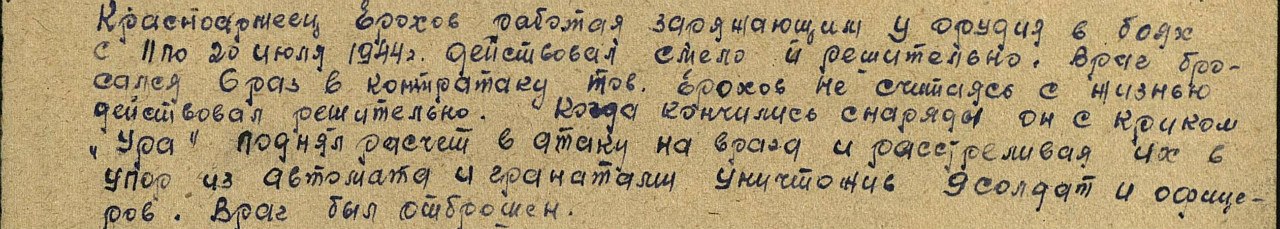 Красноармеец Ерохов работая заряжающим у орудия в боях
с 11 по 20 июля 1944г. действовал смело и решительно. Враг бро-
сался 6 раз в контратаку тов. Ерохов не считаясь с жизнью
действовал решительно. Когда кончились снаряды он с криком
„Ура" поднял расчет в атаку на врага и расстреливая их в
упор из автомата и гранатами уничтожив 9 солдат и офице-
ров. Враг был отброшен.